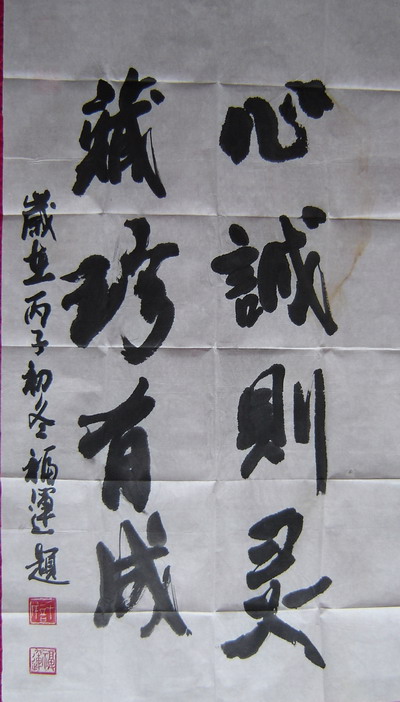 心誠則灵
藏珍有成
歲在丙子初冬福運題